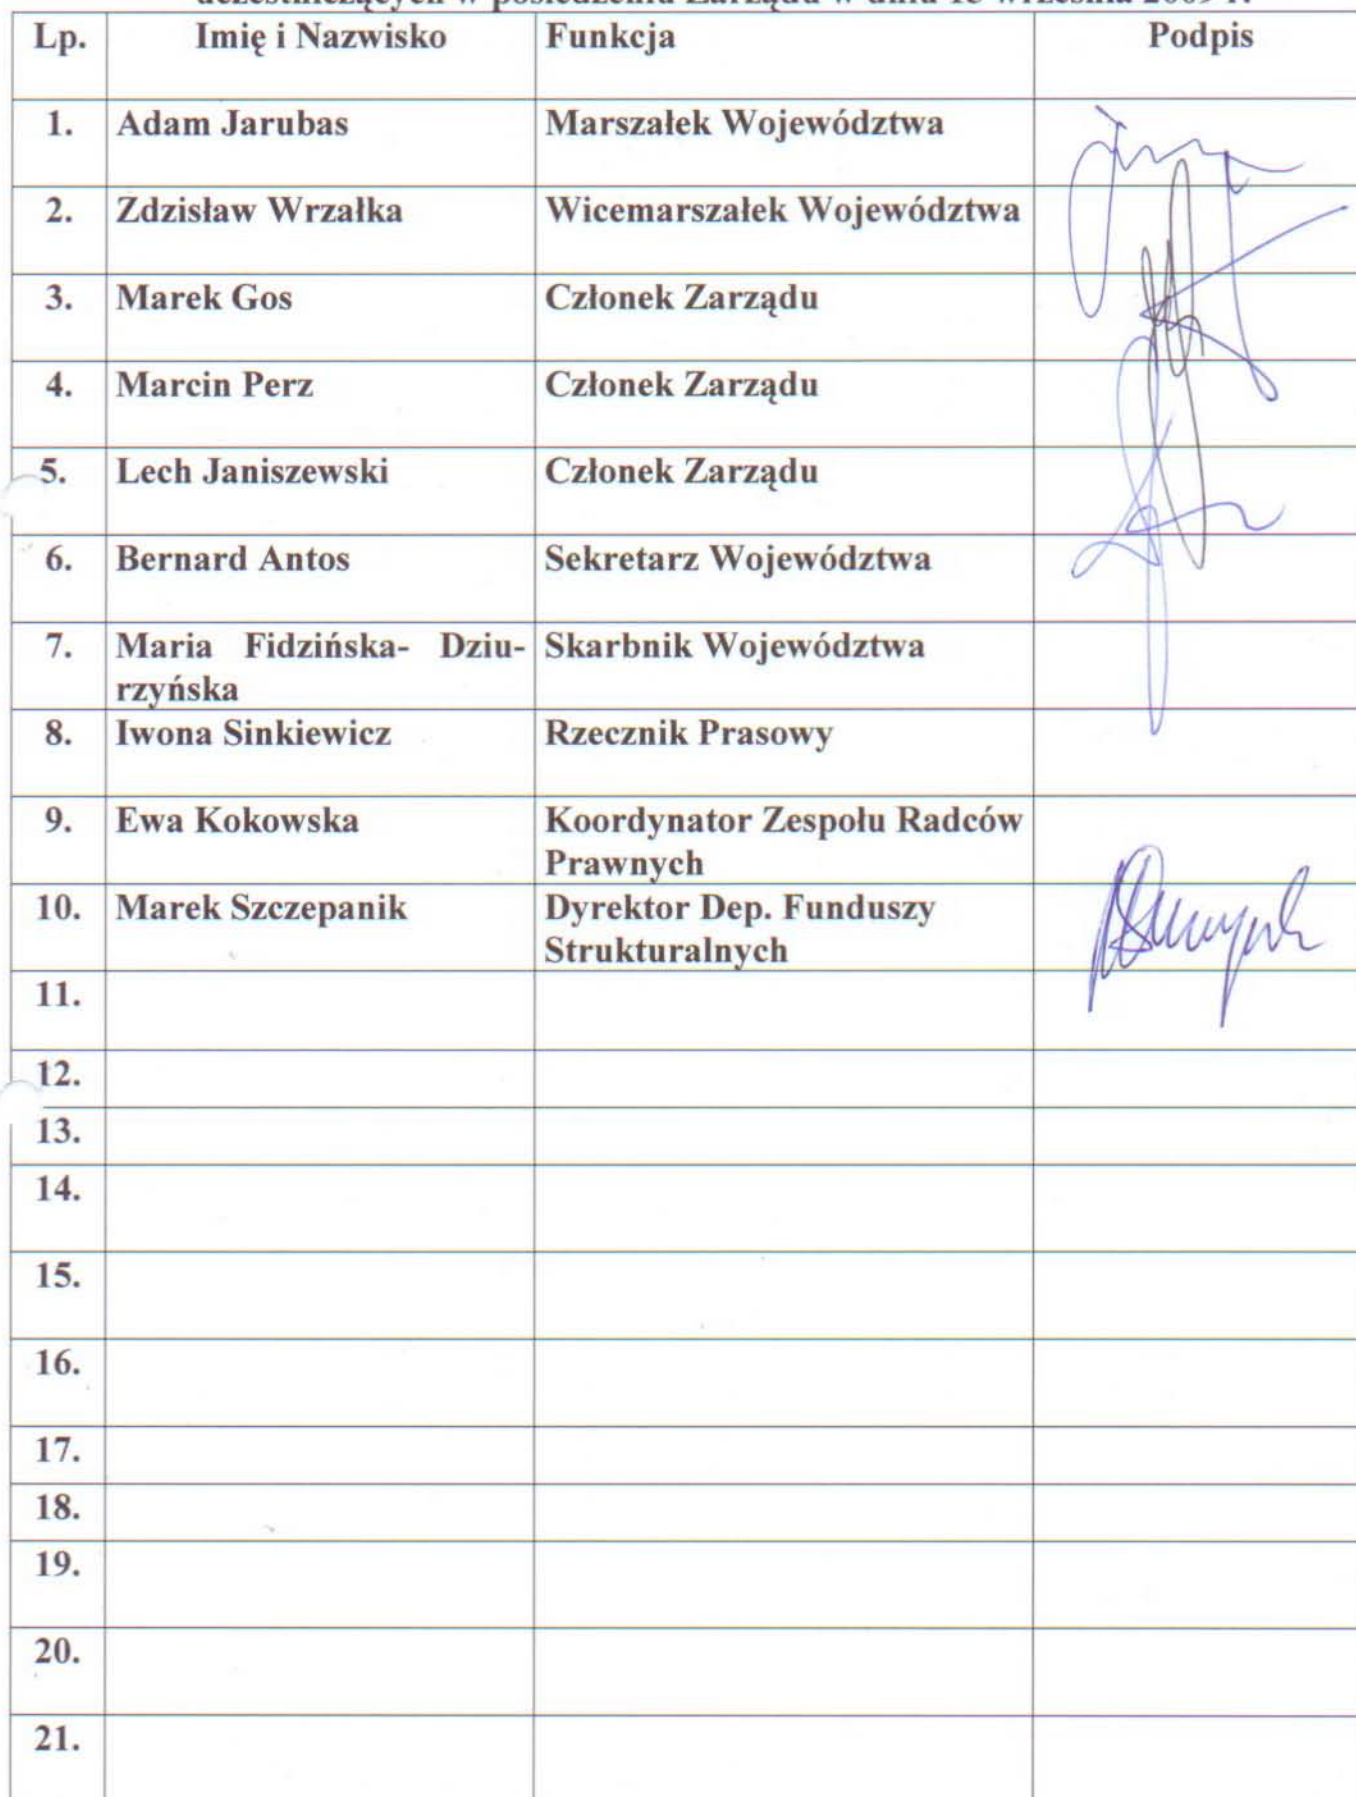 uczestniczących w posiedzeniu Zarządu w dniu
Lp. Imię i Nazwisko Funkcja Podpis
1. Adam Jarubas Marszałek Województwa
2. Zdzisław Wrzałka Wicemarszałek Województwa
3. Marek Gos Członek Zarządu
4. Marcin Perz Członek Zarządu
5. Lech Janiszewski Członek Zarządu
6. Bernard Antos Sekretarz Województwa
7. Maria Fidzińska- Dziu- Skarbnik Województwa
rzyńska
8. Iwona Sinkiewicz Rzecznik Prasowy
9. Ewa Kokowska Koordynator Zespołu Radców
Prawnych
10. Marek Szczepanik Dyrektor Dep. Funduszy
Strukturalnych
11.
12.
13.
14.
15.
16.
17.
18.
19.
20.
21.